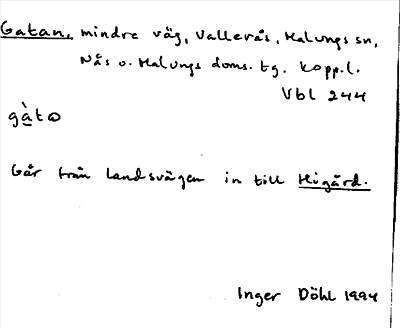 Gatan, mindre väg, Vallerås, Malungs sn,
Nås o. Malungs doms. tg. Kopp.l.
Vbl 244
gàto
Går från landsvägen in till Higård.
Inger Döhl 1994